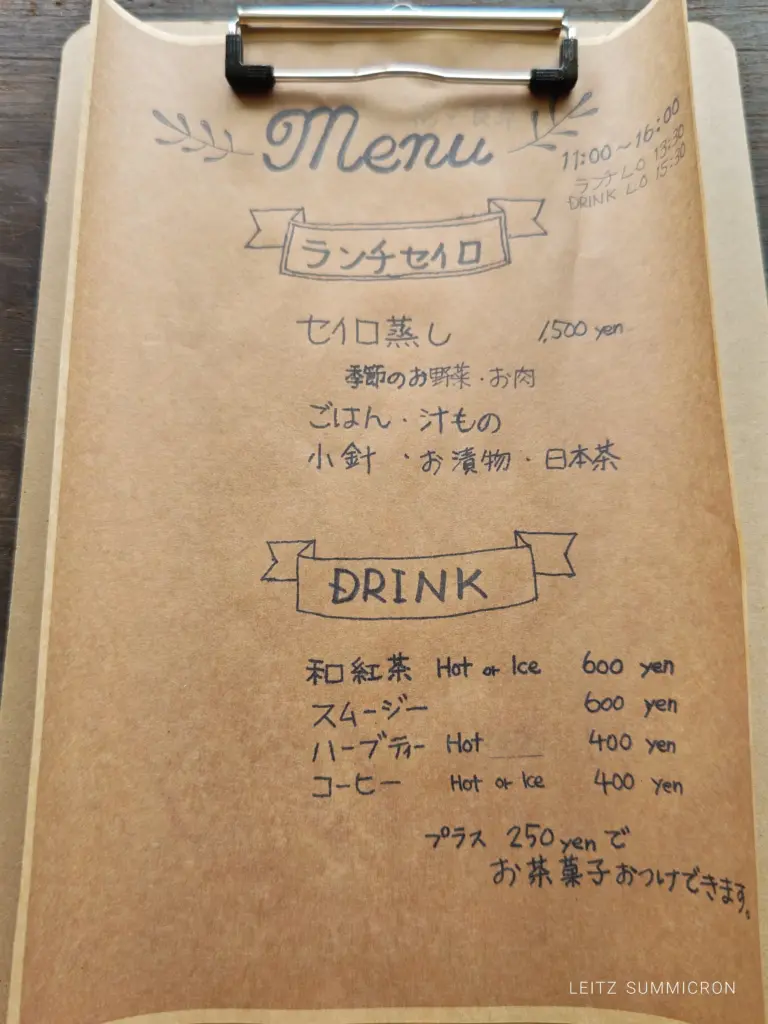 Menu
11:00~16:00
ランチ LO 13:30
DRINK LO 15:30
ランチセイロ
セイロ蒸し 1,500 yen
季節のお野菜・お肉
ごはん・汁もの
小針・お漬物・日本茶
DRINK
和紅茶 Hot or Ice 600 yen
スムージー 600 yen
ハーブティー Hot 400 yen
コーヒー Hot or Ice 400 yen
プラス 250 yen で
お茶菓子おつけできます。
LEITZ SUMMICRON